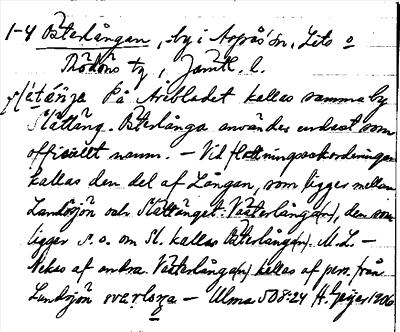 1-4 Österlången, by i Aspås sn, Lits o
Rödöns tg, Jämtl. l.
På Arebladet kallas samma by
Slättäng. Österlånga användes endast som
officiellt namn. – Vid flottningsackorderingen
kallas den del af Långan, som ligger mellan
Landösjön och Slättänget Västerlånga(n), den som
ligger s. o. om Sl. kallas Österlånga(n). M. L. –
Nekas af andra. Västerlånga(n) kallas af pers. från
Landösjön – Ulma 508:24 H. Geijer 1906